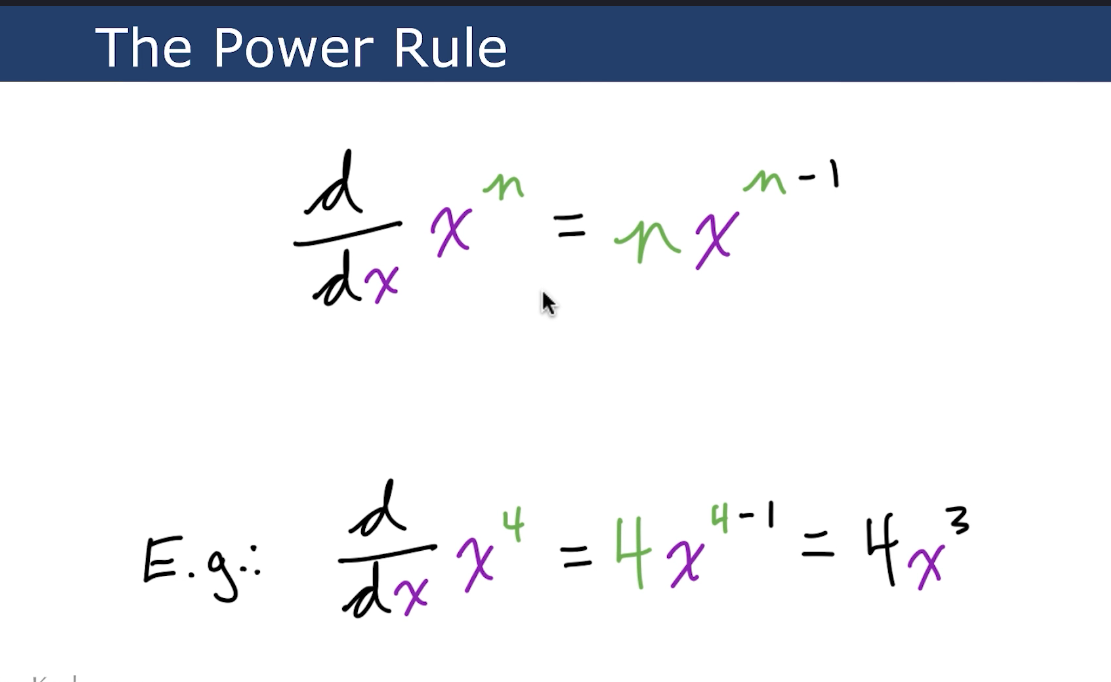 The Power Rule
d/dx x^n = n x^(n-1)
E.g.: d/dx x^4 = 4x^(4-1) = 4x^3